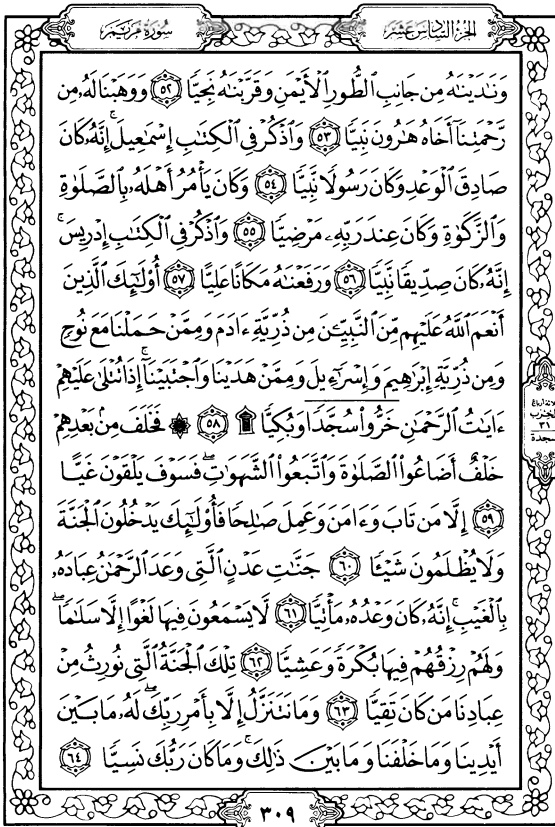 سُورَةُ مَرْيَمَ
الجُزْءُ السَّادِسَ عَشَرَ
وَنَٰدَيْنَٰهُ مِن جَانِبِ ٱلطُّورِ ٱلْأَيْمَنِ وَقَرَّبْنَٰهُ نَجِيًّا ٥٢ وَوَهَبْنَا لَهُۥ مِن
رَّحْمَتِنَآ أَخَاهُ هَٰرُونَ نَبِيًّا ٥٣ وَٱذْكُرْ فِى ٱلْكِتَٰبِ إِسْمَٰعِيلَ ۚ إِنَّهُۥ كَانَ
صَادِقَ ٱلْوَعْدِ وَكَانَ رَسُولًا نَّبِيًّا ٥٤ وَكَانَ يَأْمُرُ أَهْلَهُۥ بِٱلصَّلَوٰةِ
وَٱلزَّكَوٰةِ وَكَانَ عِندَ رَبِّهِۦ مَرْضِيًّا ٥٥ وَٱذْكُرْ فِى ٱلْكِتَٰبِ إِدْرِيسَ ۚ
إِنَّهُۥ كَانَ صِدِّيقًا نَّبِيًّا ٥٦ وَرَفَعْنَٰهُ مَكَانًا عَلِيًّا ٥٧ أُو۟لَٰٓئِكَ ٱلَّذِينَ
أَنْعَمَ ٱللَّهُ عَلَيْهِم مِّنَ ٱلنَّبِيِّـۧنَ مِن ذُرِّيَّةِ ءَادَمَ وَمِمَّنْ حَمَلْنَا مَعَ نُوحٍ
وَمِن ذُرِّيَّةِ إِبْرَٰهِيمَ وَإِسْرَٰٓءِيلَ وَمِمَّنْ هَدَيْنَا وَٱجْتَبَيْنَآ ۚ إِذَا تُتْلَىٰ عَلَيْهِمْ
ءَايَٰتُ ٱلرَّحْمَٰنِ خَرُّوا۟ سُجَّدًا وَبُكِيًّا ۩ ٥٨ ۞ فَخَلَفَ مِنۢ بَعْدِهِمْ
خَلْفٌ أَضَاعُوا۟ ٱلصَّلَوٰةَ وَٱتَّبَعُوا۟ ٱلشَّهَوَٰتِ ۖ فَسَوْفَ يَلْقَوْنَ غَيًّا
٥٩ إِلَّا مَن تَابَ وَءَامَنَ وَعَمِلَ صَٰلِحًا فَأُو۟لَٰٓئِكَ يَدْخُلُونَ ٱلْجَنَّةَ
وَلَا يُظْلَمُونَ شَيْـًٔا ٦٠ جَنَّٰتِ عَدْنٍ ٱلَّتِى وَعَدَ ٱلرَّحْمَٰنُ عِبَادَهُۥ
بِٱلْغَيْبِ ۚ إِنَّهُۥ كَانَ وَعْدُهُۥ مَأْتِيًّا ٦١ لَّا يَسْمَعُونَ فِيهَا لَغْوًا إِلَّا سَلَٰمًا ۖ
وَلَهُمْ رِزْقُهُمْ فِيهَا بُكْرَةً وَعَشِيًّا ٦٢ تِلْكَ ٱلْجَنَّةُ ٱلَّتِى نُورِثُ مِنْ
عِبَادِنَا مَن كَانَ تَقِيًّا ٦٣ وَمَا نَتَنَزَّلُ إِلَّا بِأَمْرِ رَبِّكَ ۖ لَهُۥ مَا بَيْنَ
أَيْدِينَا وَمَا خَلْفَنَا وَمَا بَيْنَ ذَٰلِكَ ۚ وَمَا كَانَ رَبُّكَ نَسِيًّا ٦٤
الحزب
٣١
سجدة
٣٠٩